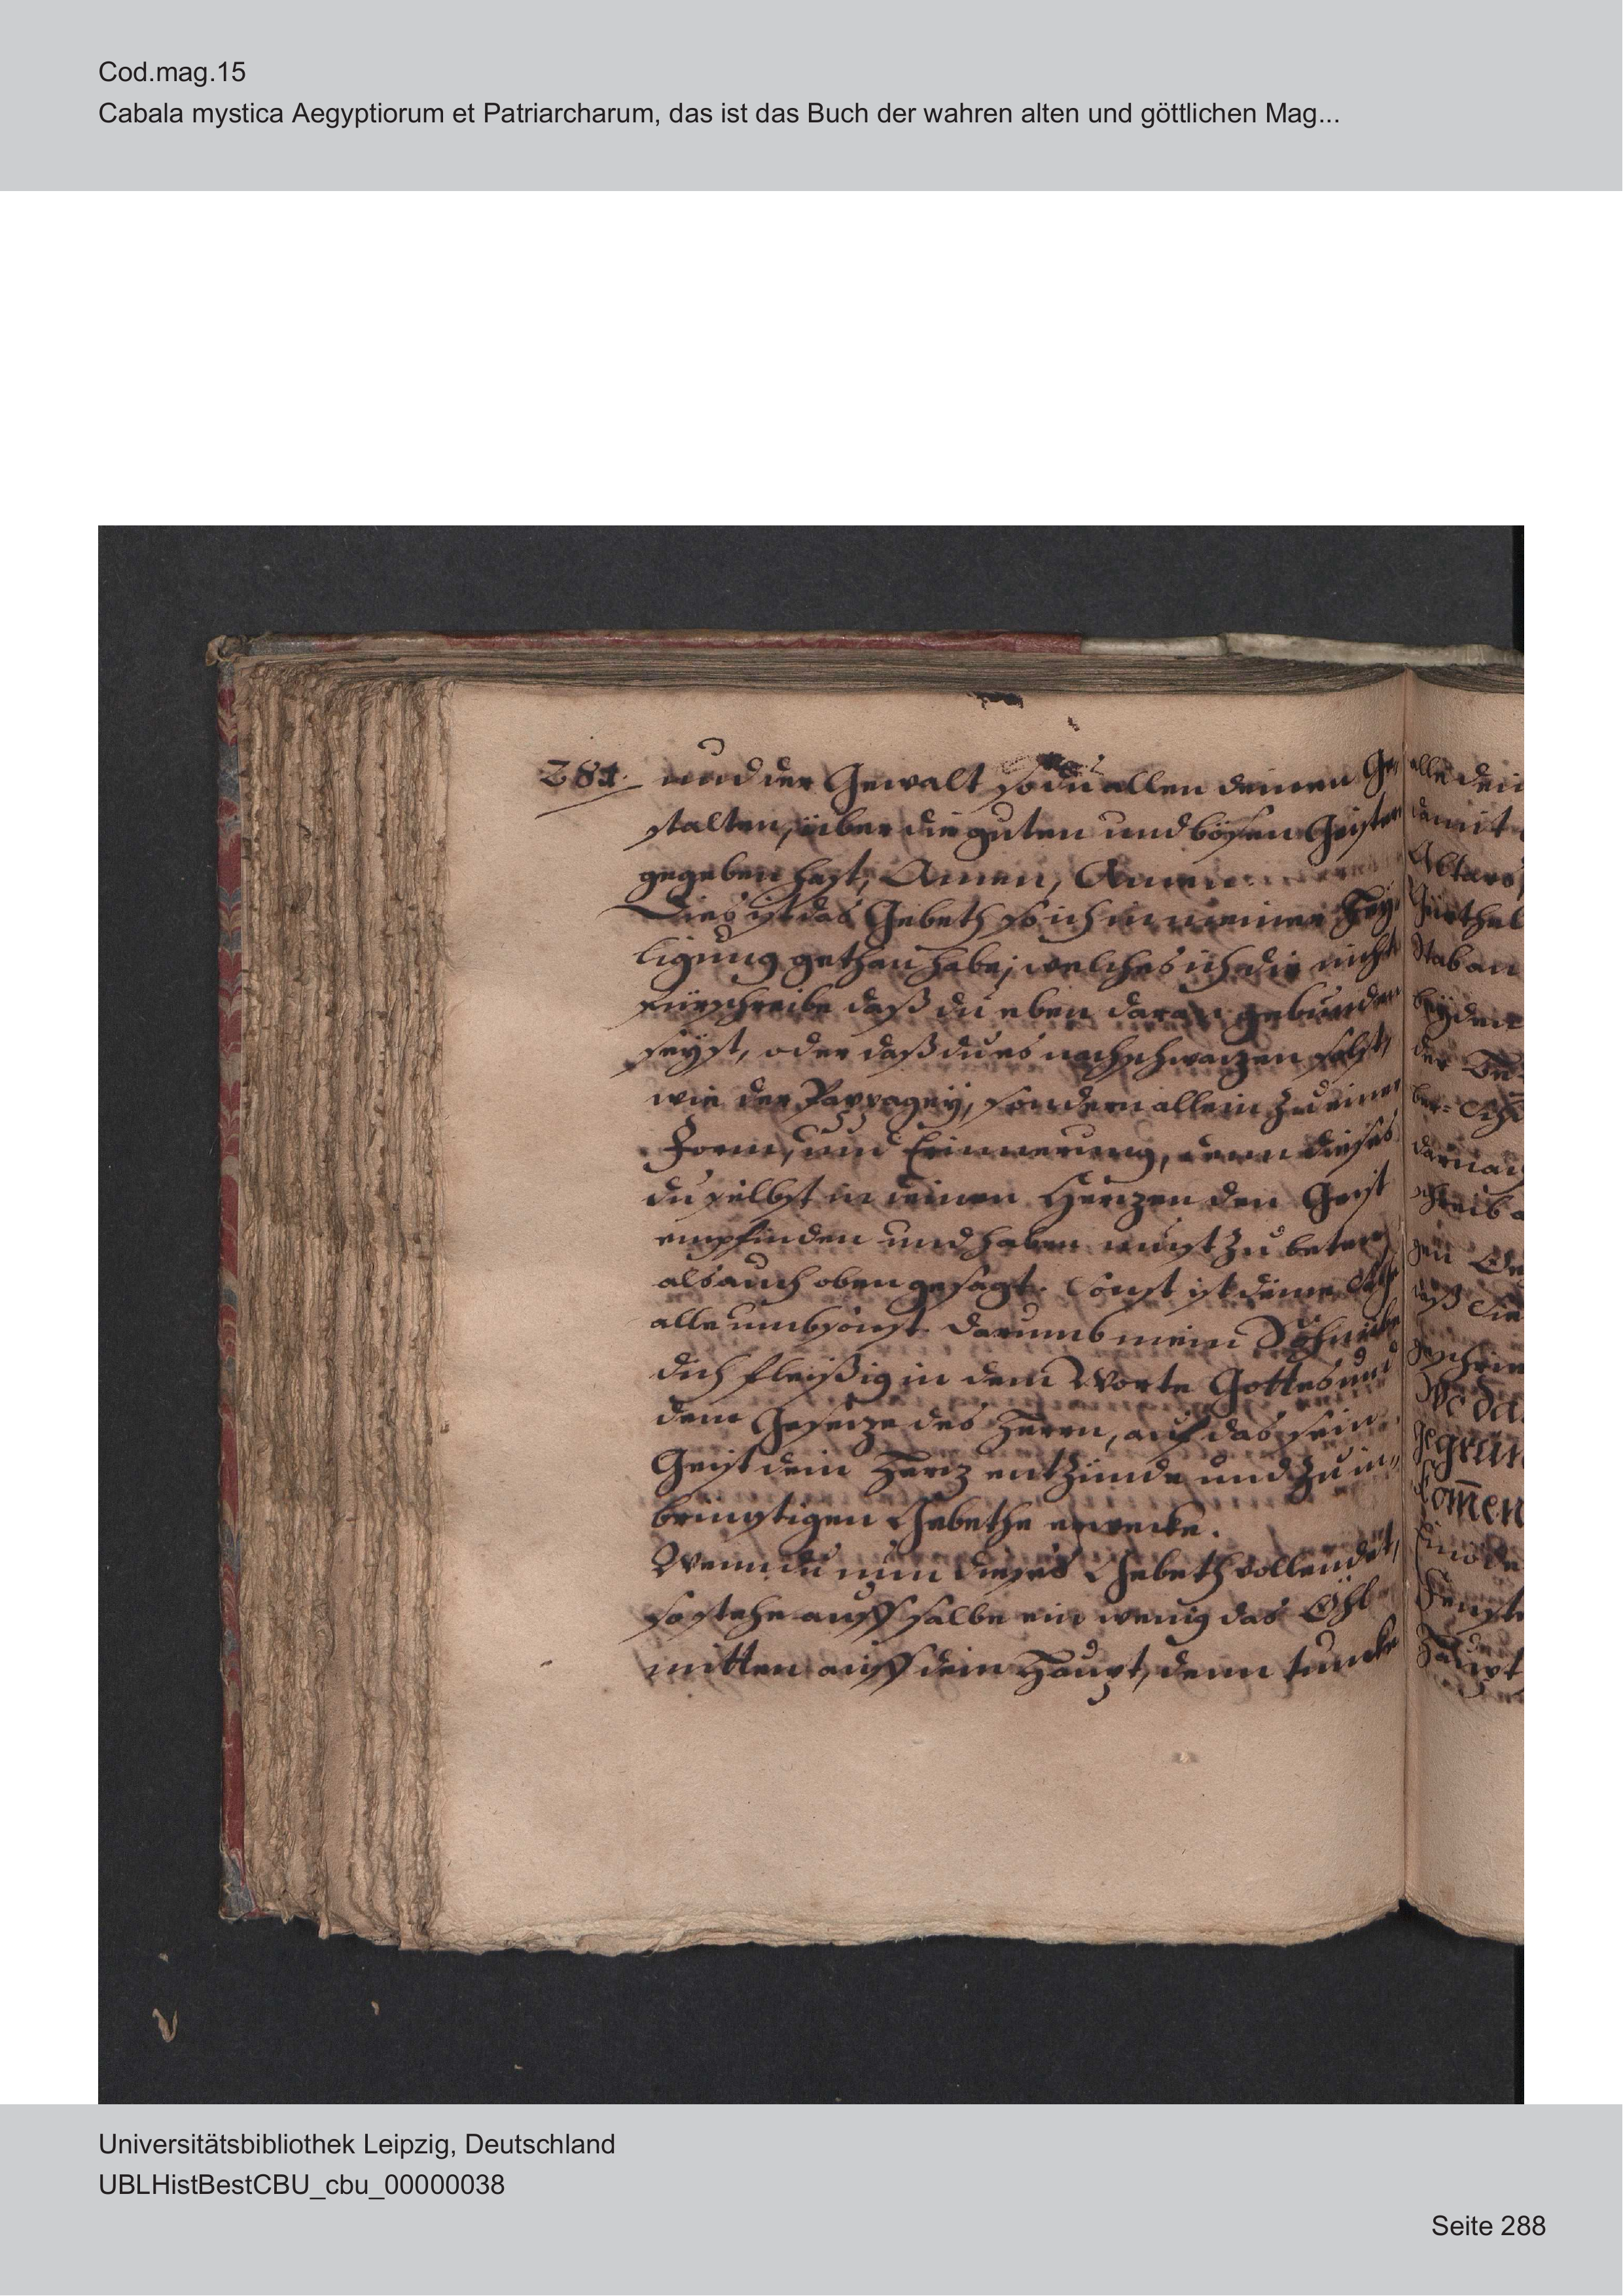 Cod.mag.15
Cabala mystica Aegyptiorum et Patriarcharum, das ist das Buch der wahren alten und göttlichen Mag...
281. und der Gewalt so du allen deinen Ge-
stalten, über die guten und bösen Geister
gegeben hast, Amen, Amen
Dies ist das Gebeth so ich in meiner Hey-
ligung gethan habe, welches ich dir nicht
fürschreibe daß du eben daran gebunden
seyst, oder daß du es nachschwazen solst,
wie der Pappagey, sondern allein zu einer
Form, und Erinnerung, denn dieses
du selbst in deinen Herzen den Geist
empfinden und haben must zu beten,
als auch oben gesagt. Sonst ist deine
alle umbsonst. Darumb mein Sohn übe
dich fleißig in dem Worte Gottes und
dem Geseze des Herrn, auf das sein
Geist dein Herz entzünde und zu in-
brünstigen Gebethe erwecke.
Wenn du nun dieses Gebeth vollendet,
so stehe auff salbe ein wenig das Öhl
mitten auff dein Haupt, denn tuncke
alle dein
damit
Altars
Gürthel
Stab an
beyden
der
darnach
schreib
daß Sie
gegrün
komen
Fenste
Haupt
Universitätsbibliothek Leipzig, Deutschland
UBLHistBestCBU_cbu_00000038
Seite 288